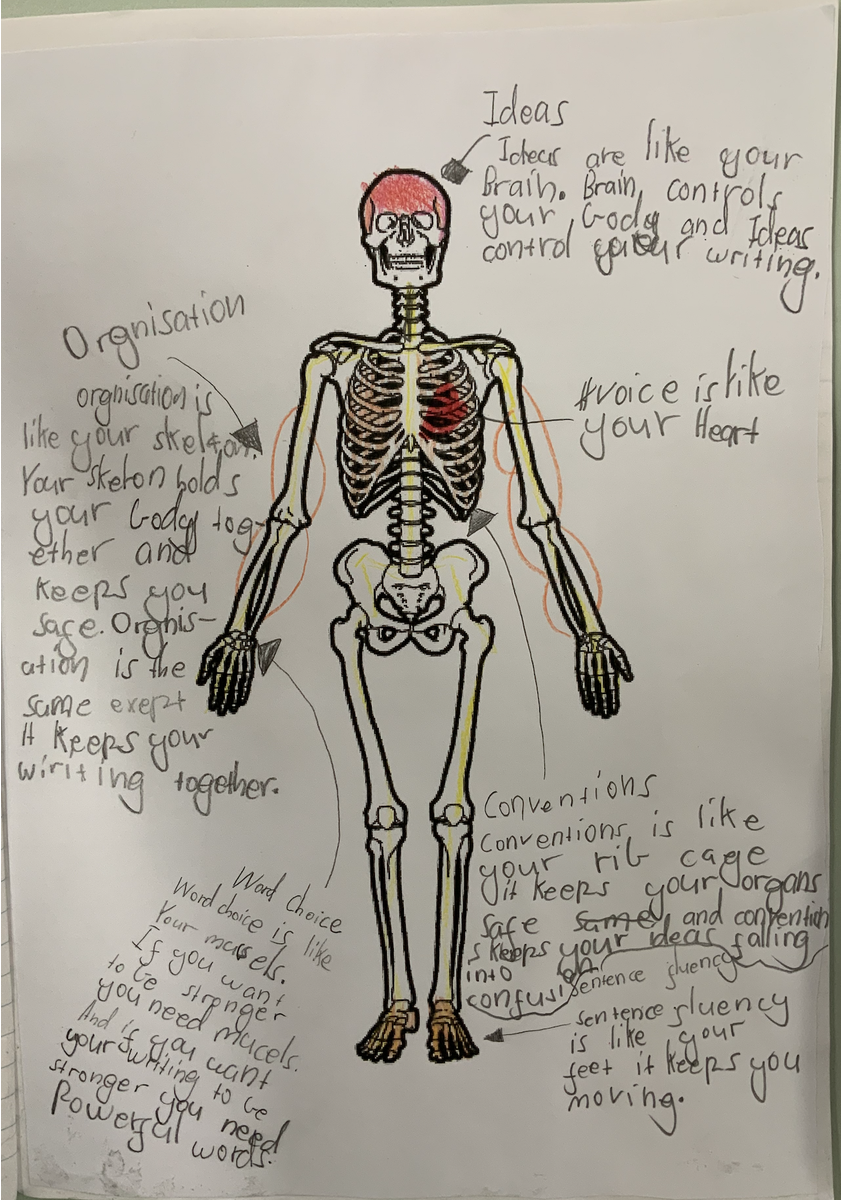 Ideas
Ideas are like your
Brain. Brain controls
your body and Ideas
control your writing.
Orgnisation
orgnisation is
like your skelton.
Your skelton holds
your body tog-
ether and
keeps you
safe. Orgnis-
ation is the
same exept
It keeps your
wiriting together.
#voice is like
your Heart
Conventions
Conventions is like
your rib cage
it keeps your organs
safe same and convention
s keeps your ideas falling
into
confusion
sentence fluency
sentence fluency
is like your
feet it keeps you
moving.
Word choice
Word choice is like
Your mussels.
If you want
to be stronger
you need mucels.
And if you want
your writing to be
stronger you need
Powerful words.